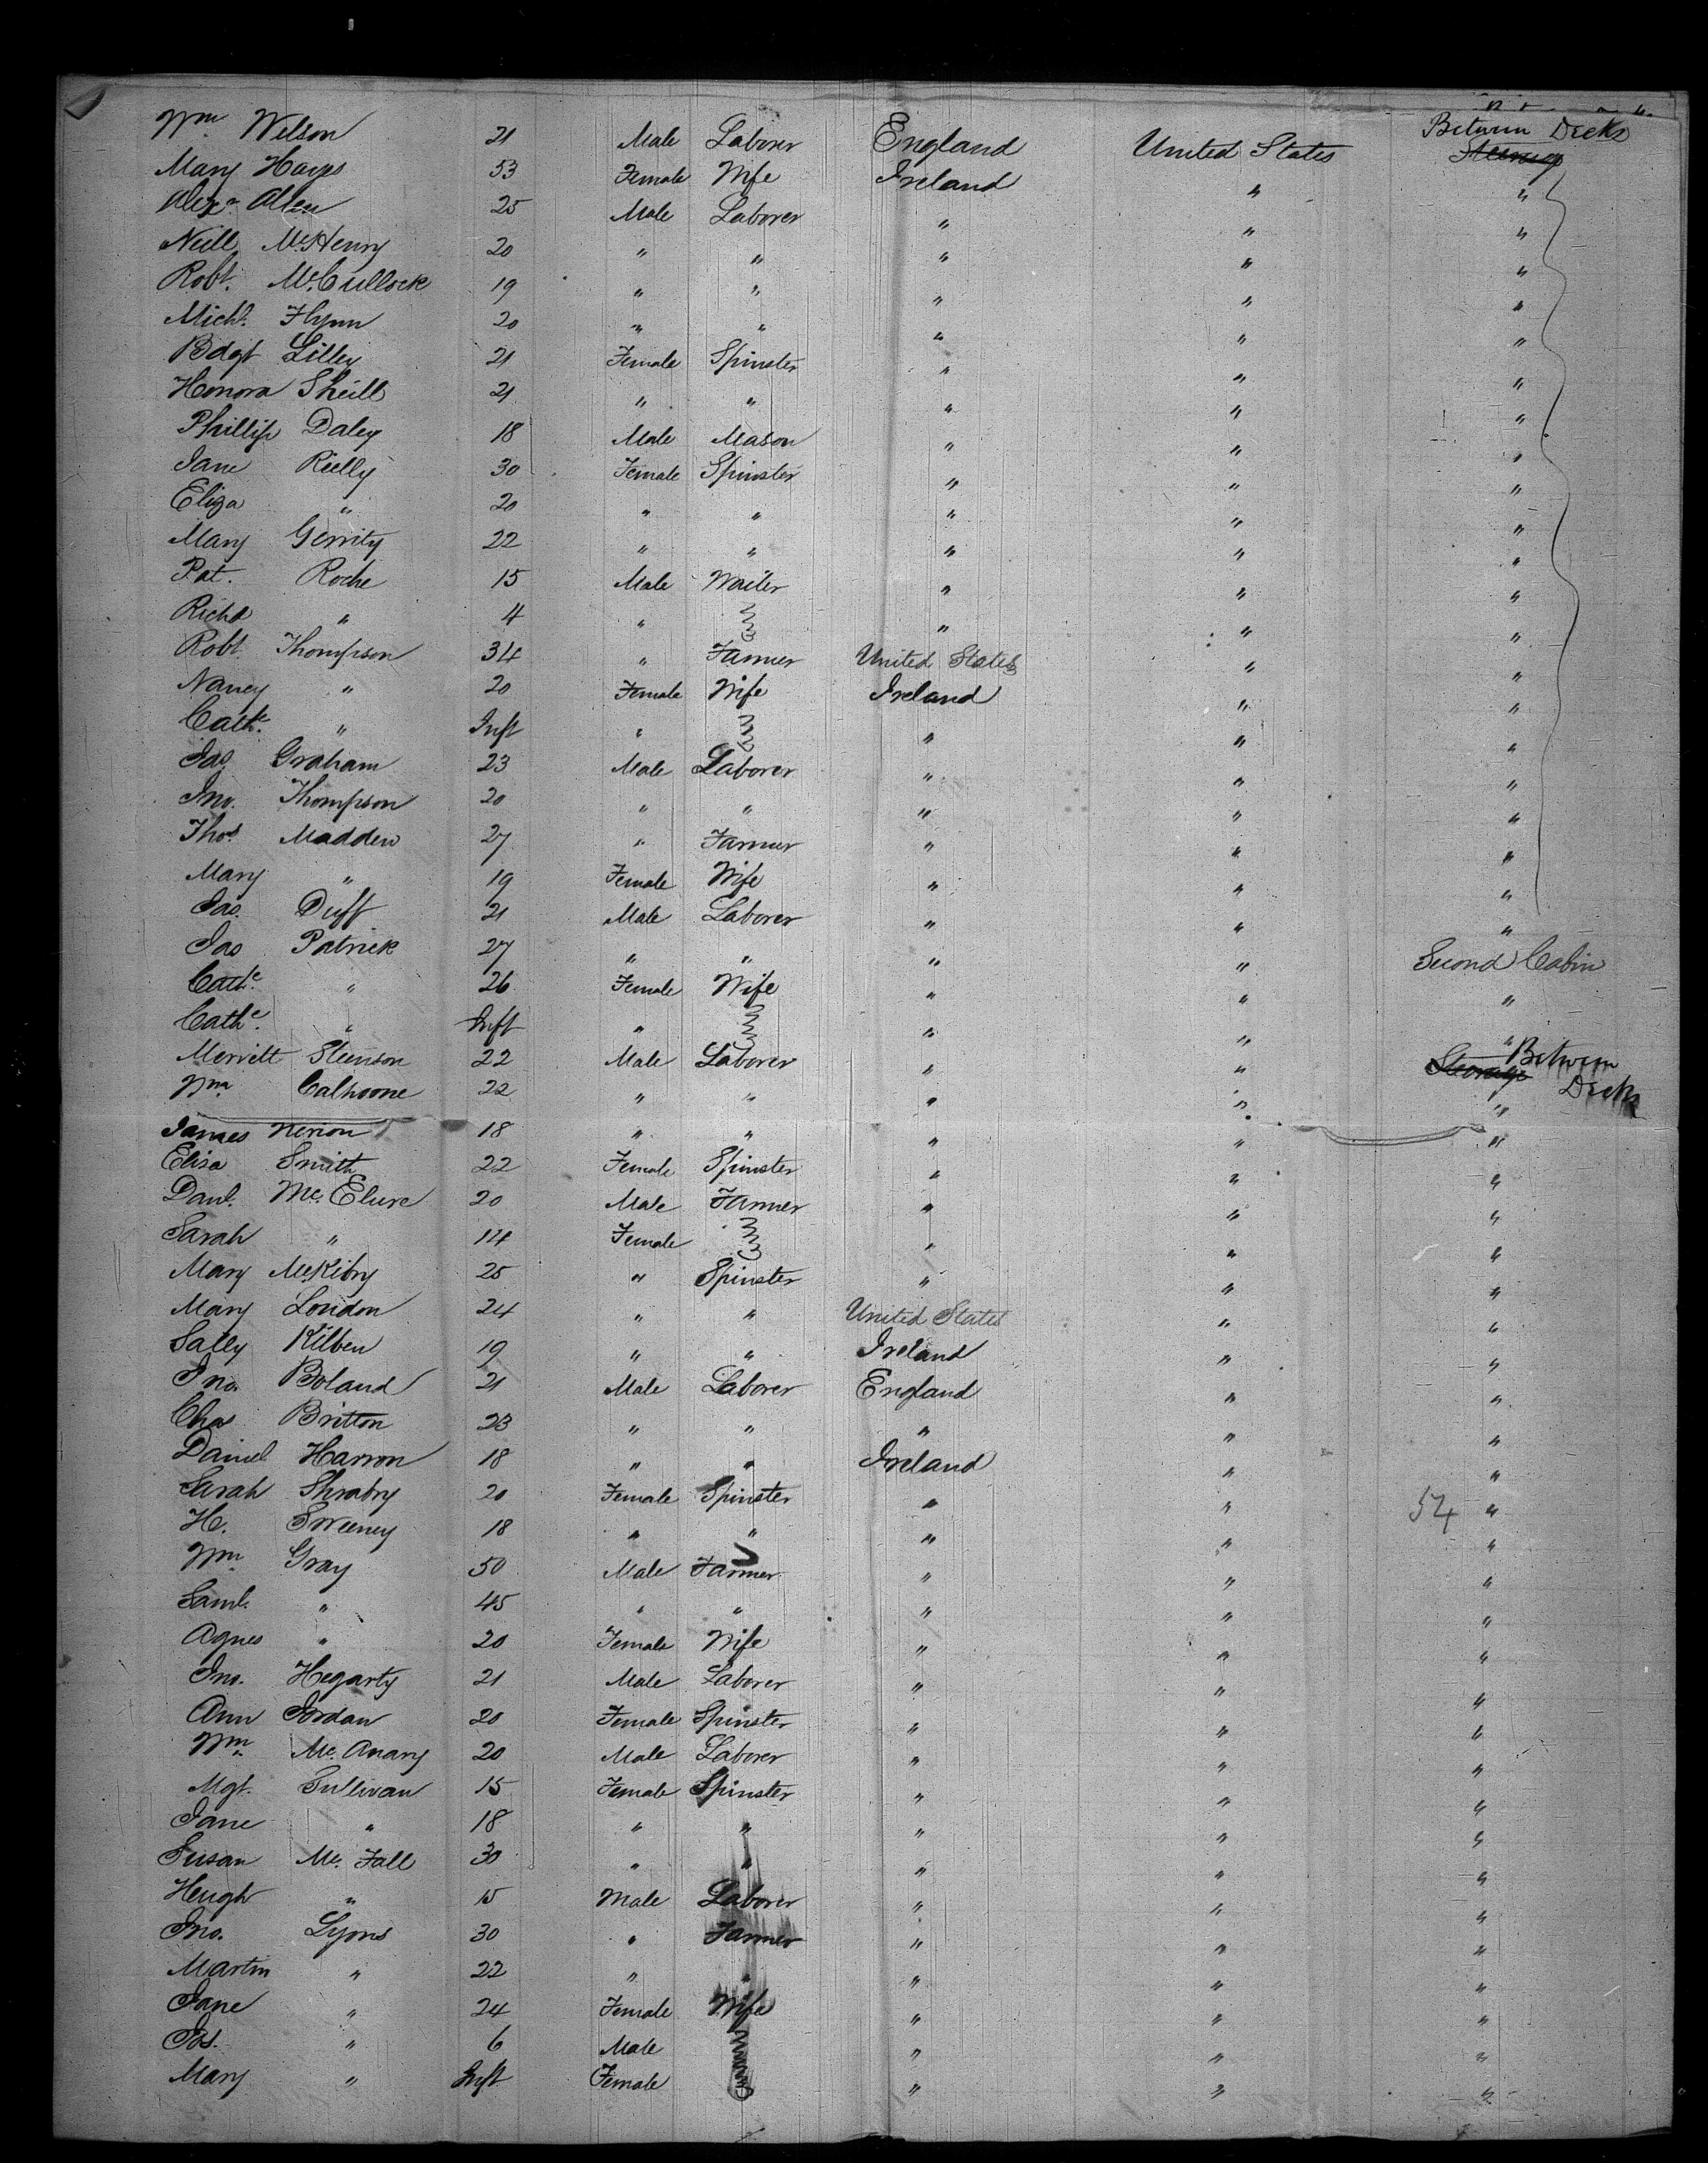 Between Decks
Wm Wilson 21 Male Laborer England United States Steerage
Mary Hayes 53 Female Wife Ireland " "
Alexr Allen 25 Male Laborer " " "
Neill McHenry 20 " " " " "
Robt. McCullock 19 " " " " "
Michl. Flynn 20 " " " " "
Bdgt Lilley 21 Female Spinster " " "
Honora Sheill 21 " " " " "
Phillip Daley 18 Male Mason " " "
Jane Rielly 30 Female Spinster " " "
Eliza " 20 " " " " "
Mary Gerrity 22 " " " " "
Pat. Roche 15 Male Waiter " " "
Richd " 4 " " " "
Robt. Thompson 34 " Farmer United States " "
Nancy " 20 Female Wife Ireland " "
Cathe. " Inft " " " "
Jas. Graham 23 Male Laborer " " "
Jno. Thompson 20 " " " " "
Thos. Madden 27 " Farmer " " "
Mary " 19 Female Wife " " "
Jas. Duff 21 Male Laborer " " "
Jas Patrick 27 " " " " Second Cabin
Cathe. " 26 Female Wife " " "
Cathe. " Inft " " " "
Merritt Steenson 22 Male Laborer " " Steerage Between Decks
Wm Calhoone 22 " " " " "
James Nerion 18 " " " " "
Elisa Smith 22 Female Spinster " " "
Danl. Mc. Elure 20 Male Farmer " " "
Sarah " 14 Female " " "
Mary McKibry 25 " Spinster " " "
Mary Loudon 24 " " United States " "
Sally Kilben 19 " " Ireland " "
Jno. Boland 21 Male Laborer England " "
Chas Britton 23 " " " " "
Daniel Harron 18 " " Ireland " "
Sarah Shrabry 20 Female Spinster " " 54 "
H. Sweeney 18 " " " " "
Wm Gray 50 Male Farmer " " "
Saml. " 45 " " " " "
Agnes " 20 Female Wife " " "
Jno. Hegarty 21 Male Laborer " " "
Ann Jordan 20 Female Spinster " " "
Wm Mc. Anany 20 Male Laborer " " "
Mgt. Sullivan 15 Female Spinster " " "
Jane " 18 " " " " "
Susan Mc. Fall 30 " " " " "
Hugh " 15 Male Laborer " " "
Jno. Lyons 30 " Farmer " " "
Martin " 22 " " " " "
Jane " 24 Female Wife " " "
Jos. " 6 Male " " "
Mary " Inft Female " " "